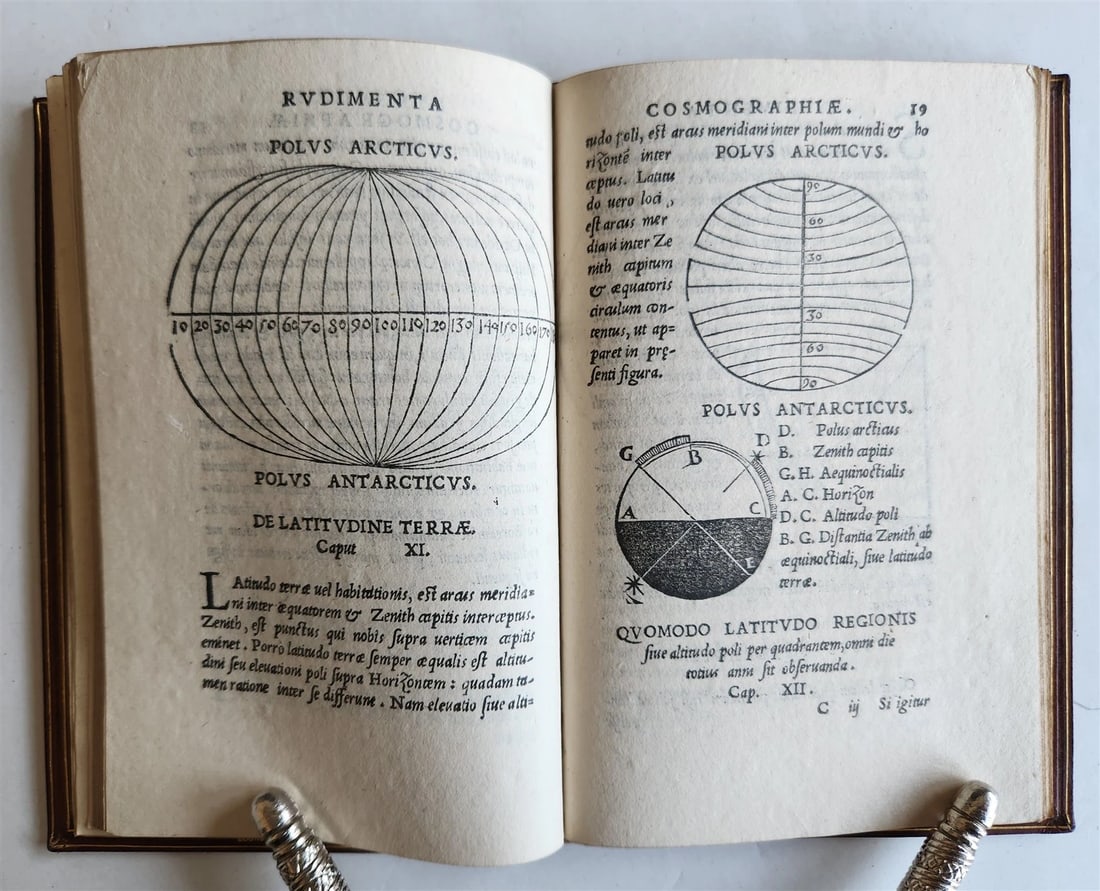 RVDIMENTA
POLVS ARCTICVS.
10 20 30 40 50 60 70 80 90 100 110 120 130 140 150 160 170
POLVS ANTARCTICVS.
DE LATITVDINE TERRÆ.
Caput XI.
LAtitudo terræ uel habitationis, est arcus meridia=
ni inter æquatorem & Zenith capitis interceptus.
Zenith, est punctus qui nobis supra uerticem capitis
eminet. Porro latitudo terræ semper æqualis est altitu-
dini seu eleuationi poli supra Horizontem: quadam ta-
men ratione inter se differunt. Nam eleuatio siue alti=
COSMOGRAPHIÆ. 19
tudo poli, est arcus meridiani inter polum mundi & ho
rizontē inter
ceptus. Latitu
do uero loci,
est arcus mer
diani inter Ze
nith capitum
& æquatoris
circulum con-
tentus, ut ap=
paret in prę-
senti figura.
POLVS ARCTICVS.
90
60
30
30
60
90
POLVS ANTARCTICVS.
G B D
A C
E
D. Polus arcticus
B. Zenith capitis
G. H. Aequinoctialis
A. C. Horizon
D. C. Altitudo poli
B. G. Distantia Zenith ab
æquinoctiali, siue latitudo
terræ.
QVOMODO LATITVDO REGIONIS
siue altitudo poli per quadrantem, omni die
totius anni sit obseruanda.
Cap. XII.
C iij Si igitur